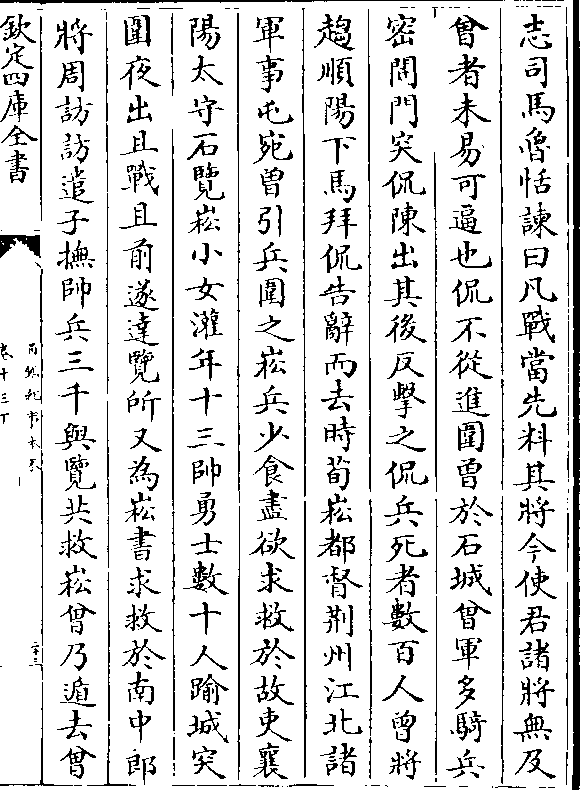 志司馬魯恬諫曰凡戰當先料其將今使君諸將無及
曾者未易可逼也侃不從進圍曾於石城曾軍多騎兵
密開門突侃陳出其後反擊之侃兵死者數百人曾將
趨順陽下馬拜侃告辭而去時荀崧都督荆州江北諸
軍事屯宛曾引兵圍之崧兵少食盡欲求救於故吏襄
陽太守石覽崧小女灌年十三帥勇士數十人踰城突
圍夜出且戰且前遂達覽所又為崧書求救於南中郎
將周訪訪遣子撫帥兵三千與覽共救崧曾乃遁去曾
欽定四庫全書
卷十三下
二十三